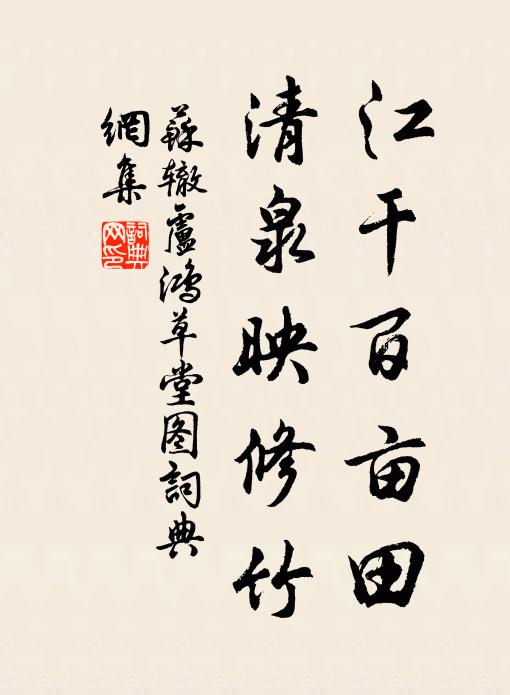 江干百亩田
清泉映修竹
蘇辙盧鸿草堂图詞典
網集
詞典网印